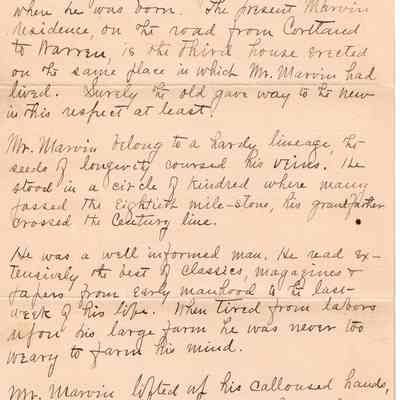 where he was born. The present Marvin
residence, on the road from Cortland
to Warren, is the third house erected
on the same place in which Mr. Marvin had
lived. Surely the old gave way to the new
in this respect at least.
Mr. Marvin belong to a hardy lineage, the
seeds of longevity coursed his veins. He
stood in a circle of kindred where many
passed the Eightieth mile-stone, his grandfather
crossed the Century line.
He was a well informed man. He read ex-
tensively the best of classics, magazines &
papers from early manhood to the last
week of his life. When tired from labors
upon his large farm he was never too
weary to farm his mind.
Mr. Marvin lifted up his calloused hands,